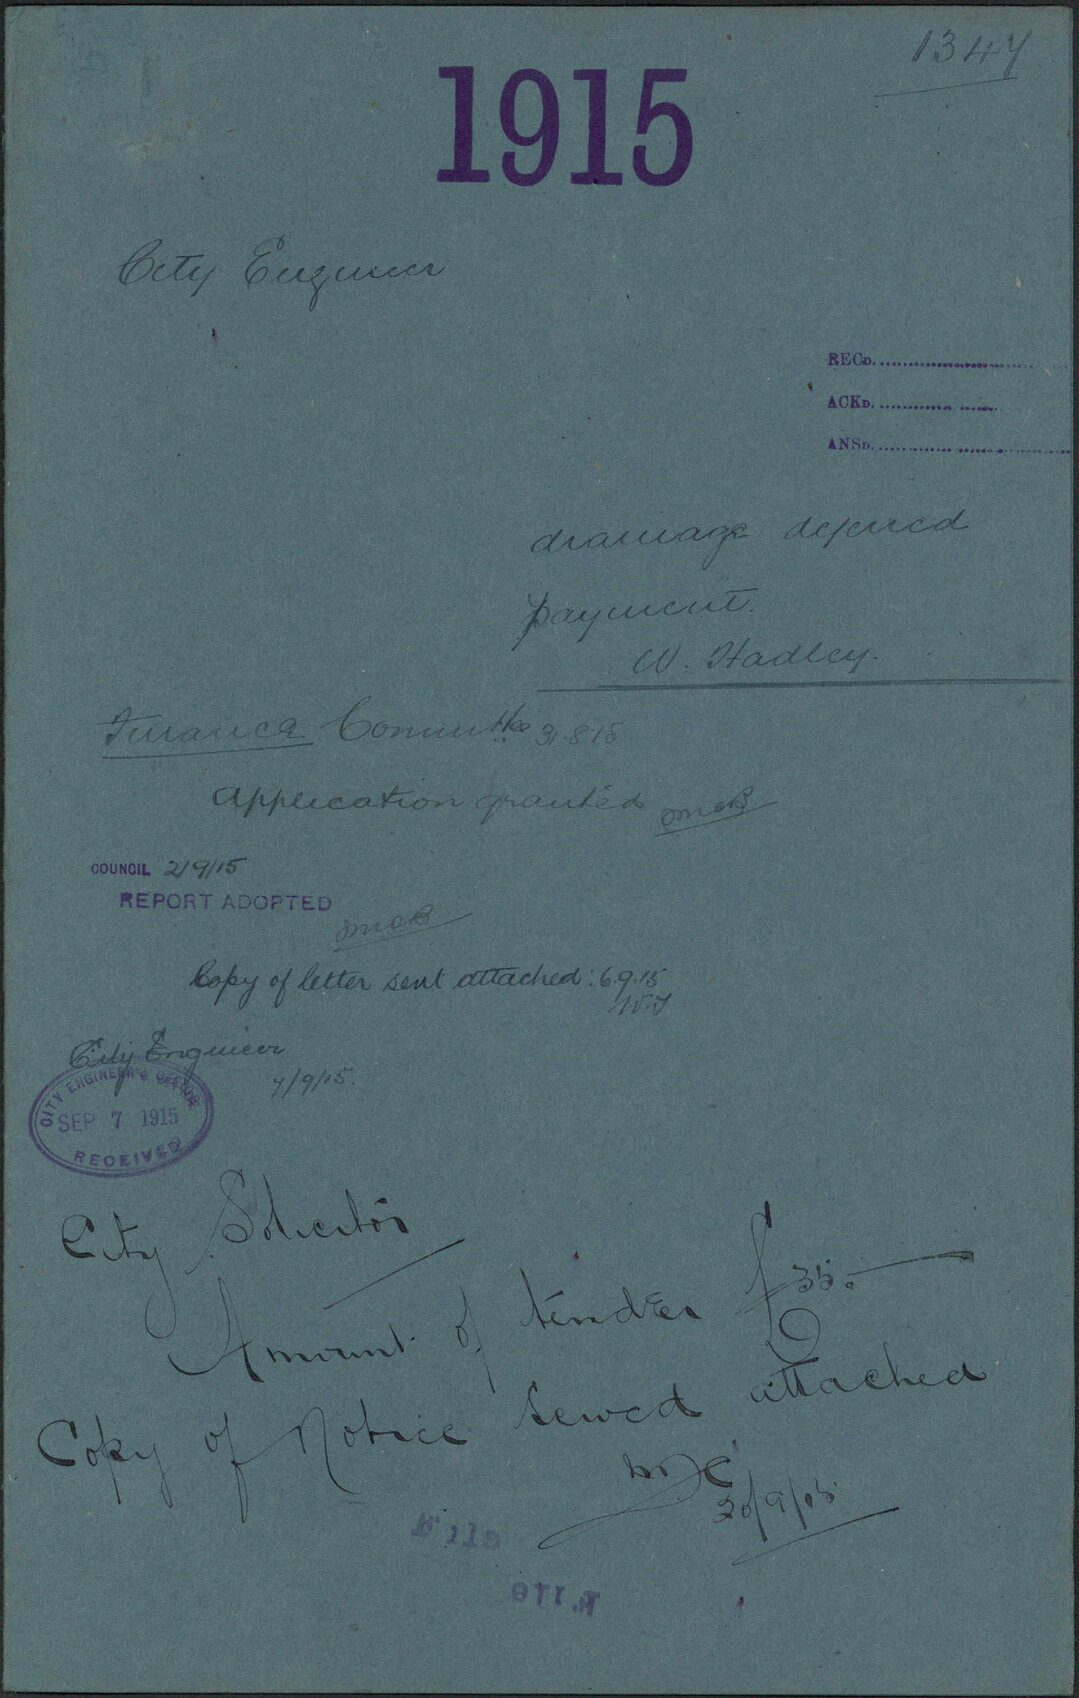 1347
1915
City Engineer
RECD.
ACKD.
ANSD.
drainage deferred
payment.
W. Hadley.
Finance Committee 31.8.15
Application granted McB
COUNCIL 2/9/15
REPORT ADOPTED
McB
Copy of letter sent attached: 6.9.15
City Engineer
7/9/15.
CITY ENGINEER'S OFFICE
SEP 7 1915
RECEIVED
City Solicitor
Amount of tender £35.
Copy of Notice served attached